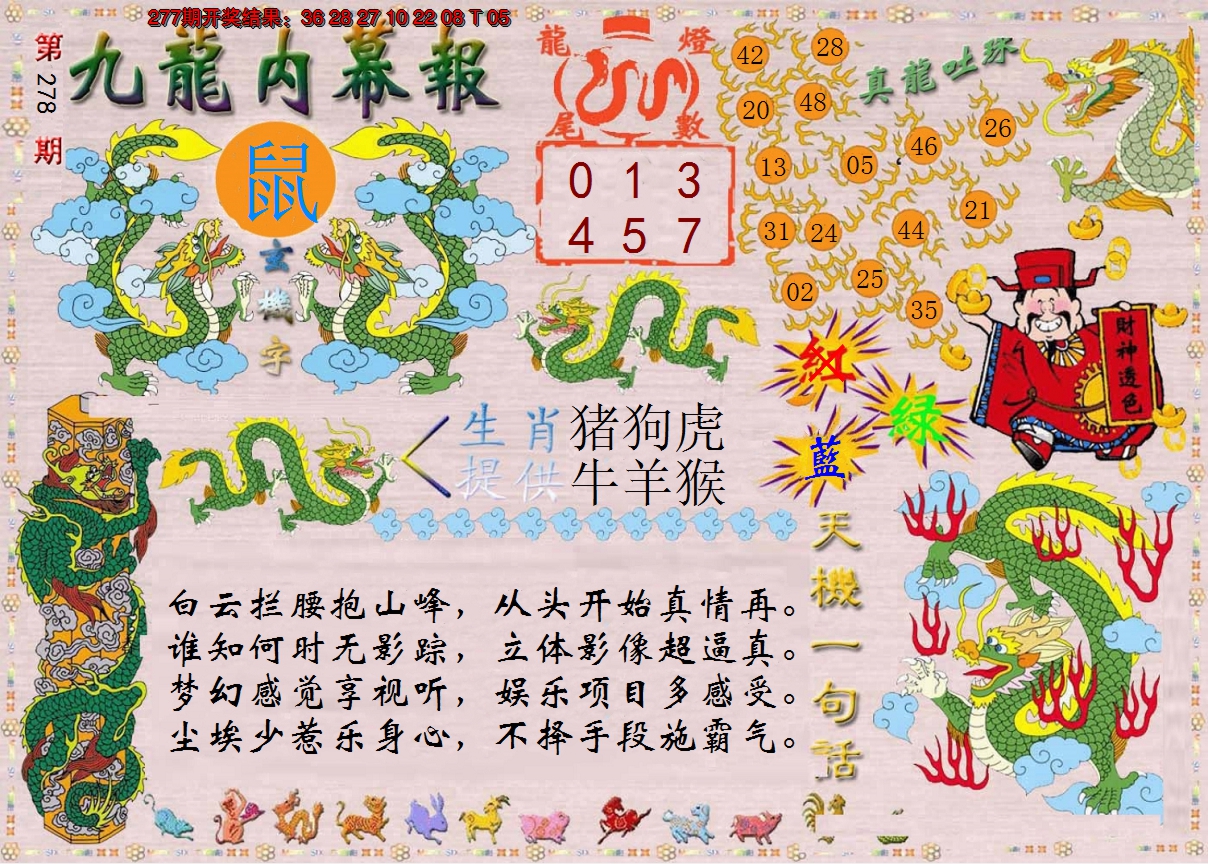 277期开奖结果：36 28 27 10 22 08 T 05
第278期
九龍内幕報
鼠
玄機字
龍燈
尾數
0 1 3
4 5 7
真龍吐珠
42 28
20 48
13 05 46 26
31 24 44 21
02 25 35
財神透色
紅
綠
藍
生肖 猪狗虎
提供 牛羊猴
天機一句話
白云拦腰抱山峰，从头开始真情再。
谁知何时无影踪，立体影像超逼真。
梦幻感觉享视听，娱乐项目多感受。
尘埃少惹乐身心，不择手段施霸气。